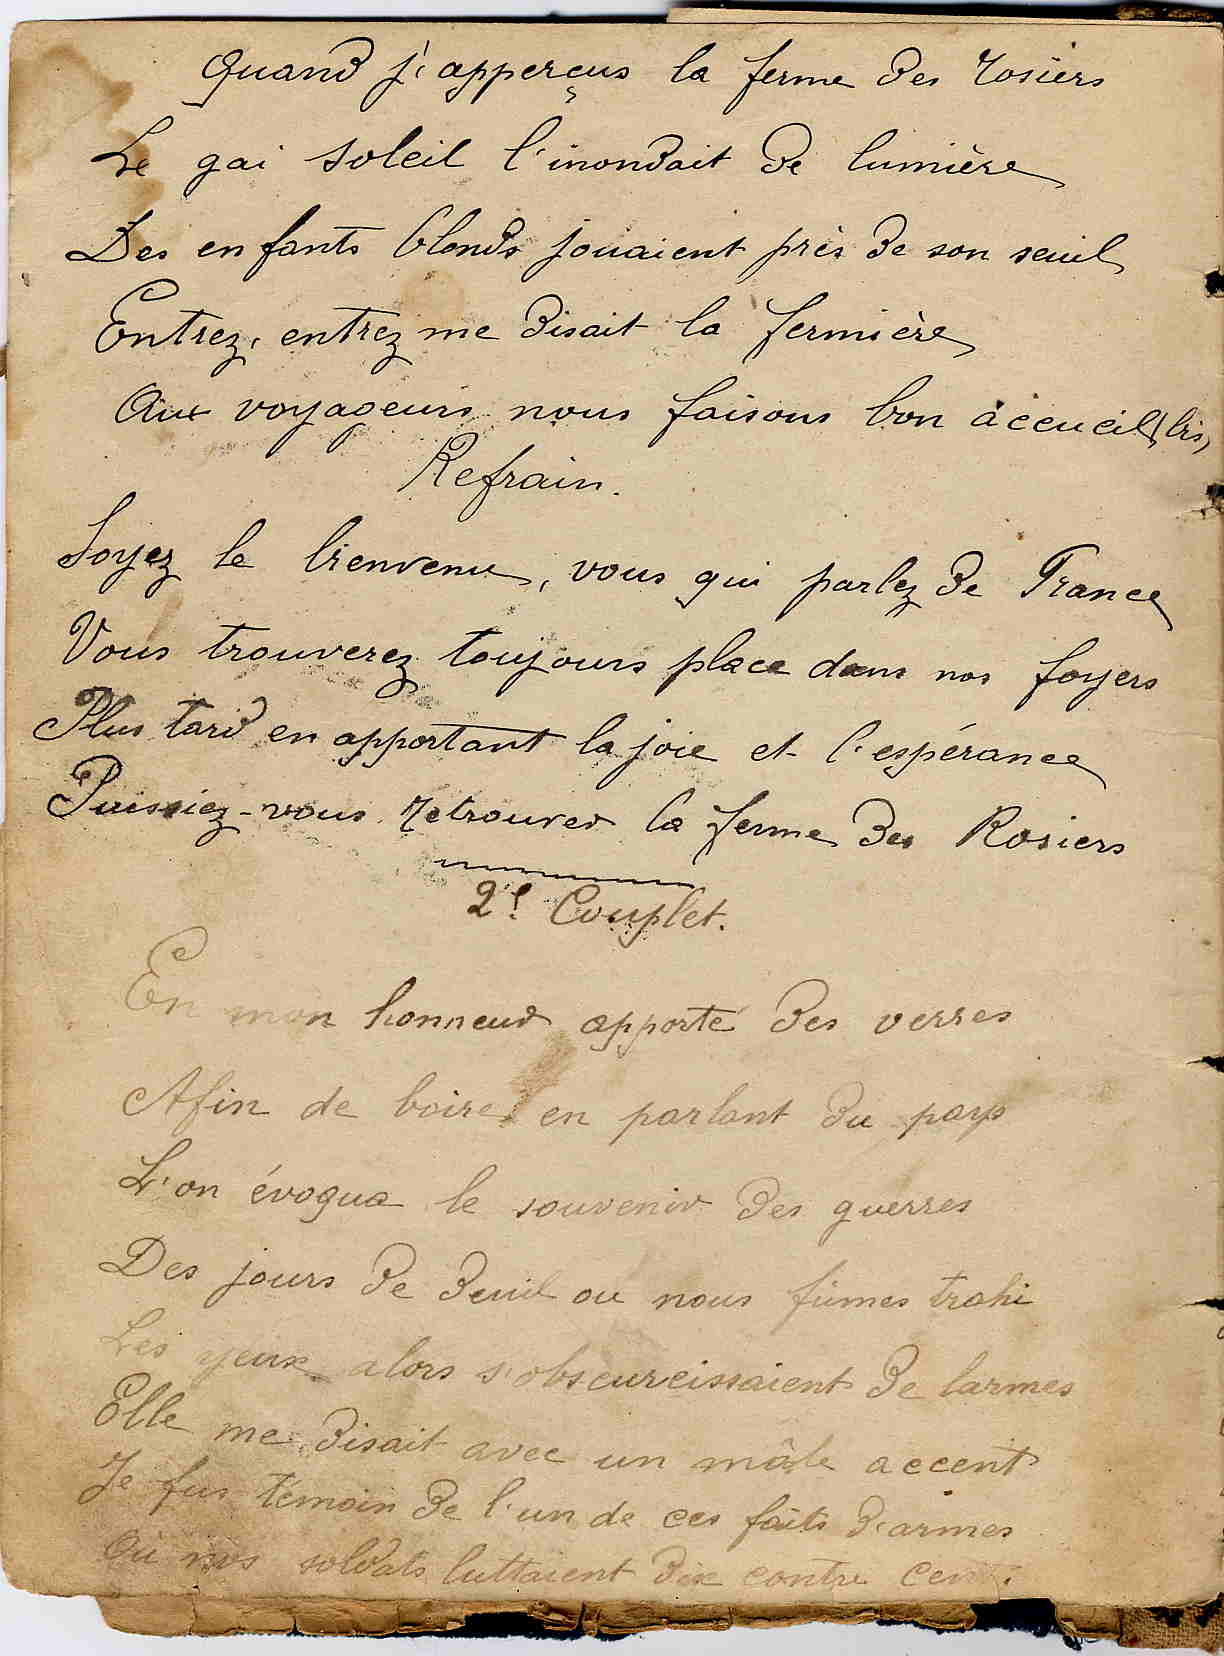 Quand j'apperçus la ferme des rosiers
Le gai soleil l'inondait de lumière
Des enfants blonds jouaient près de son seuil
Entrez, entrez me disait la fermière
Aux voyageurs nous faisons bon accueil (bis)
Refrain.
Soyez le bienvenu, vous qui parlez de France
Vous trouverez toujours place dans nos foyers
Plus tard en apportant la joie et l'espérance
Puissiez-vous retrouver la ferme des Rosiers
2e Couplet.
En mon honneur apporté des verres
Afin de boire en parlant du pays
L'on évoqua le souvenir des guerres
Des jours de deuil ou nous fûmes trahi
Les yeux alors s'obscurcissaient de larmes
Elle me disait avec un mâle accent
Je fus témoin de l'un de ces faits d'armes
Où nos soldats luttaient dix contre cent.